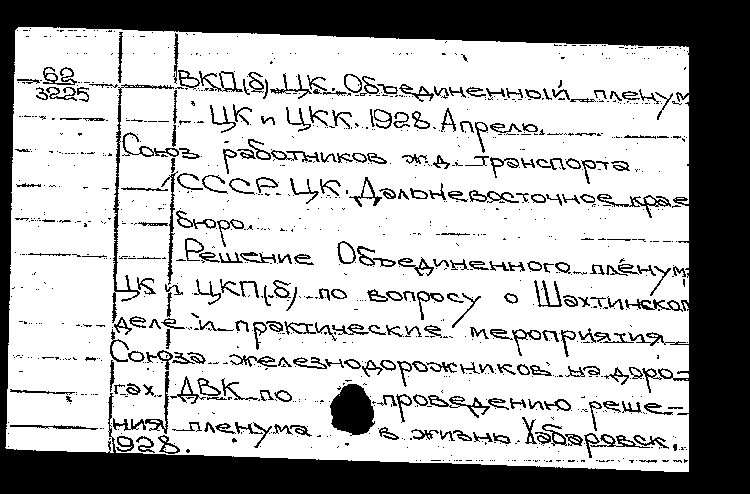 62
3225
ВКП(б) ЦК. Объединенный пленум
ЦК и ЦКК. 1928. Апрель.
Союз работников ж.д. транспорта
СССР. ЦК. Дальневосточное крае
бюро.
Решение Объединенного пленума
ЦК и ЦКП(б) по вопросу о Шахтинском
деле и практические мероприятия
Союза железнодорожников на доро-
гах ДВК по проведению реше-
ния пленума в жизнь. Хабаровск,
1928.